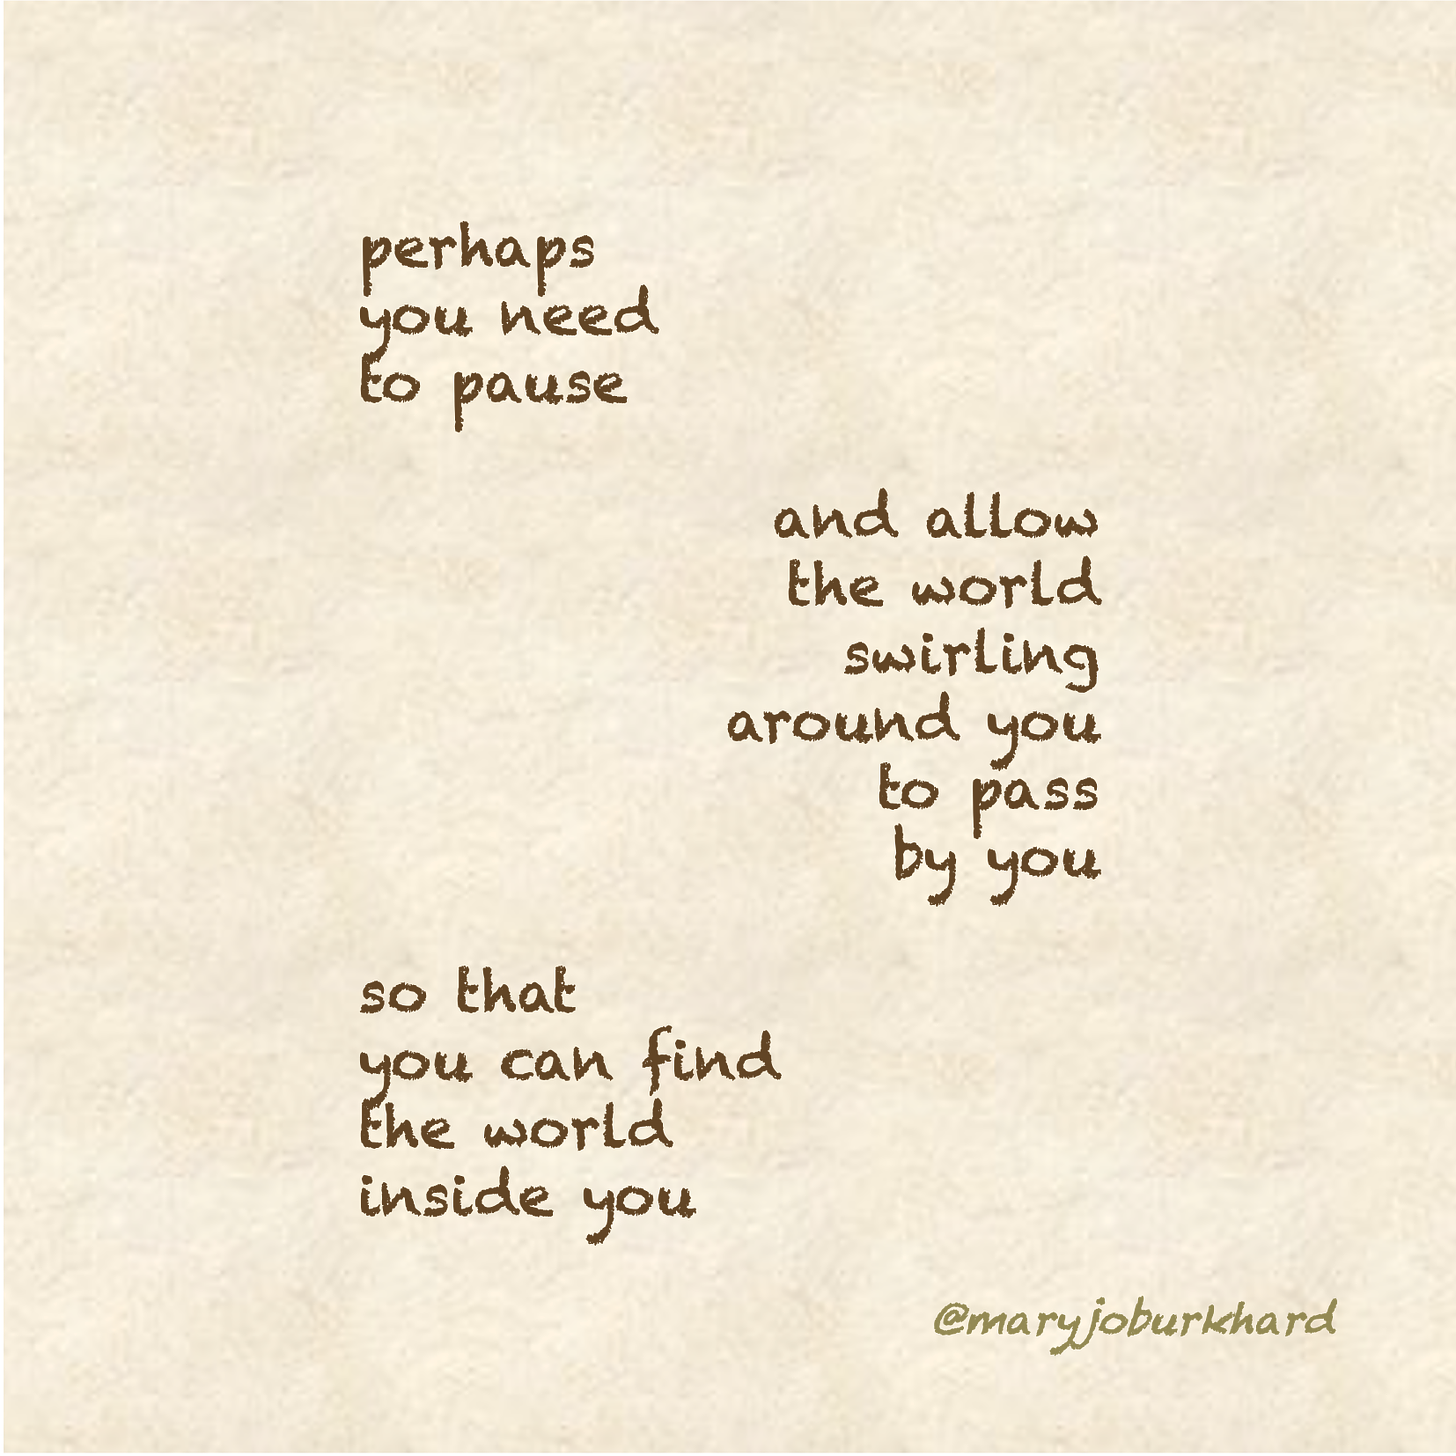 perhaps
you need
to pause
and allow
the world
swirling
around you
to pass
by you
so that
you can find
the world
inside you
@maryjoburkhard